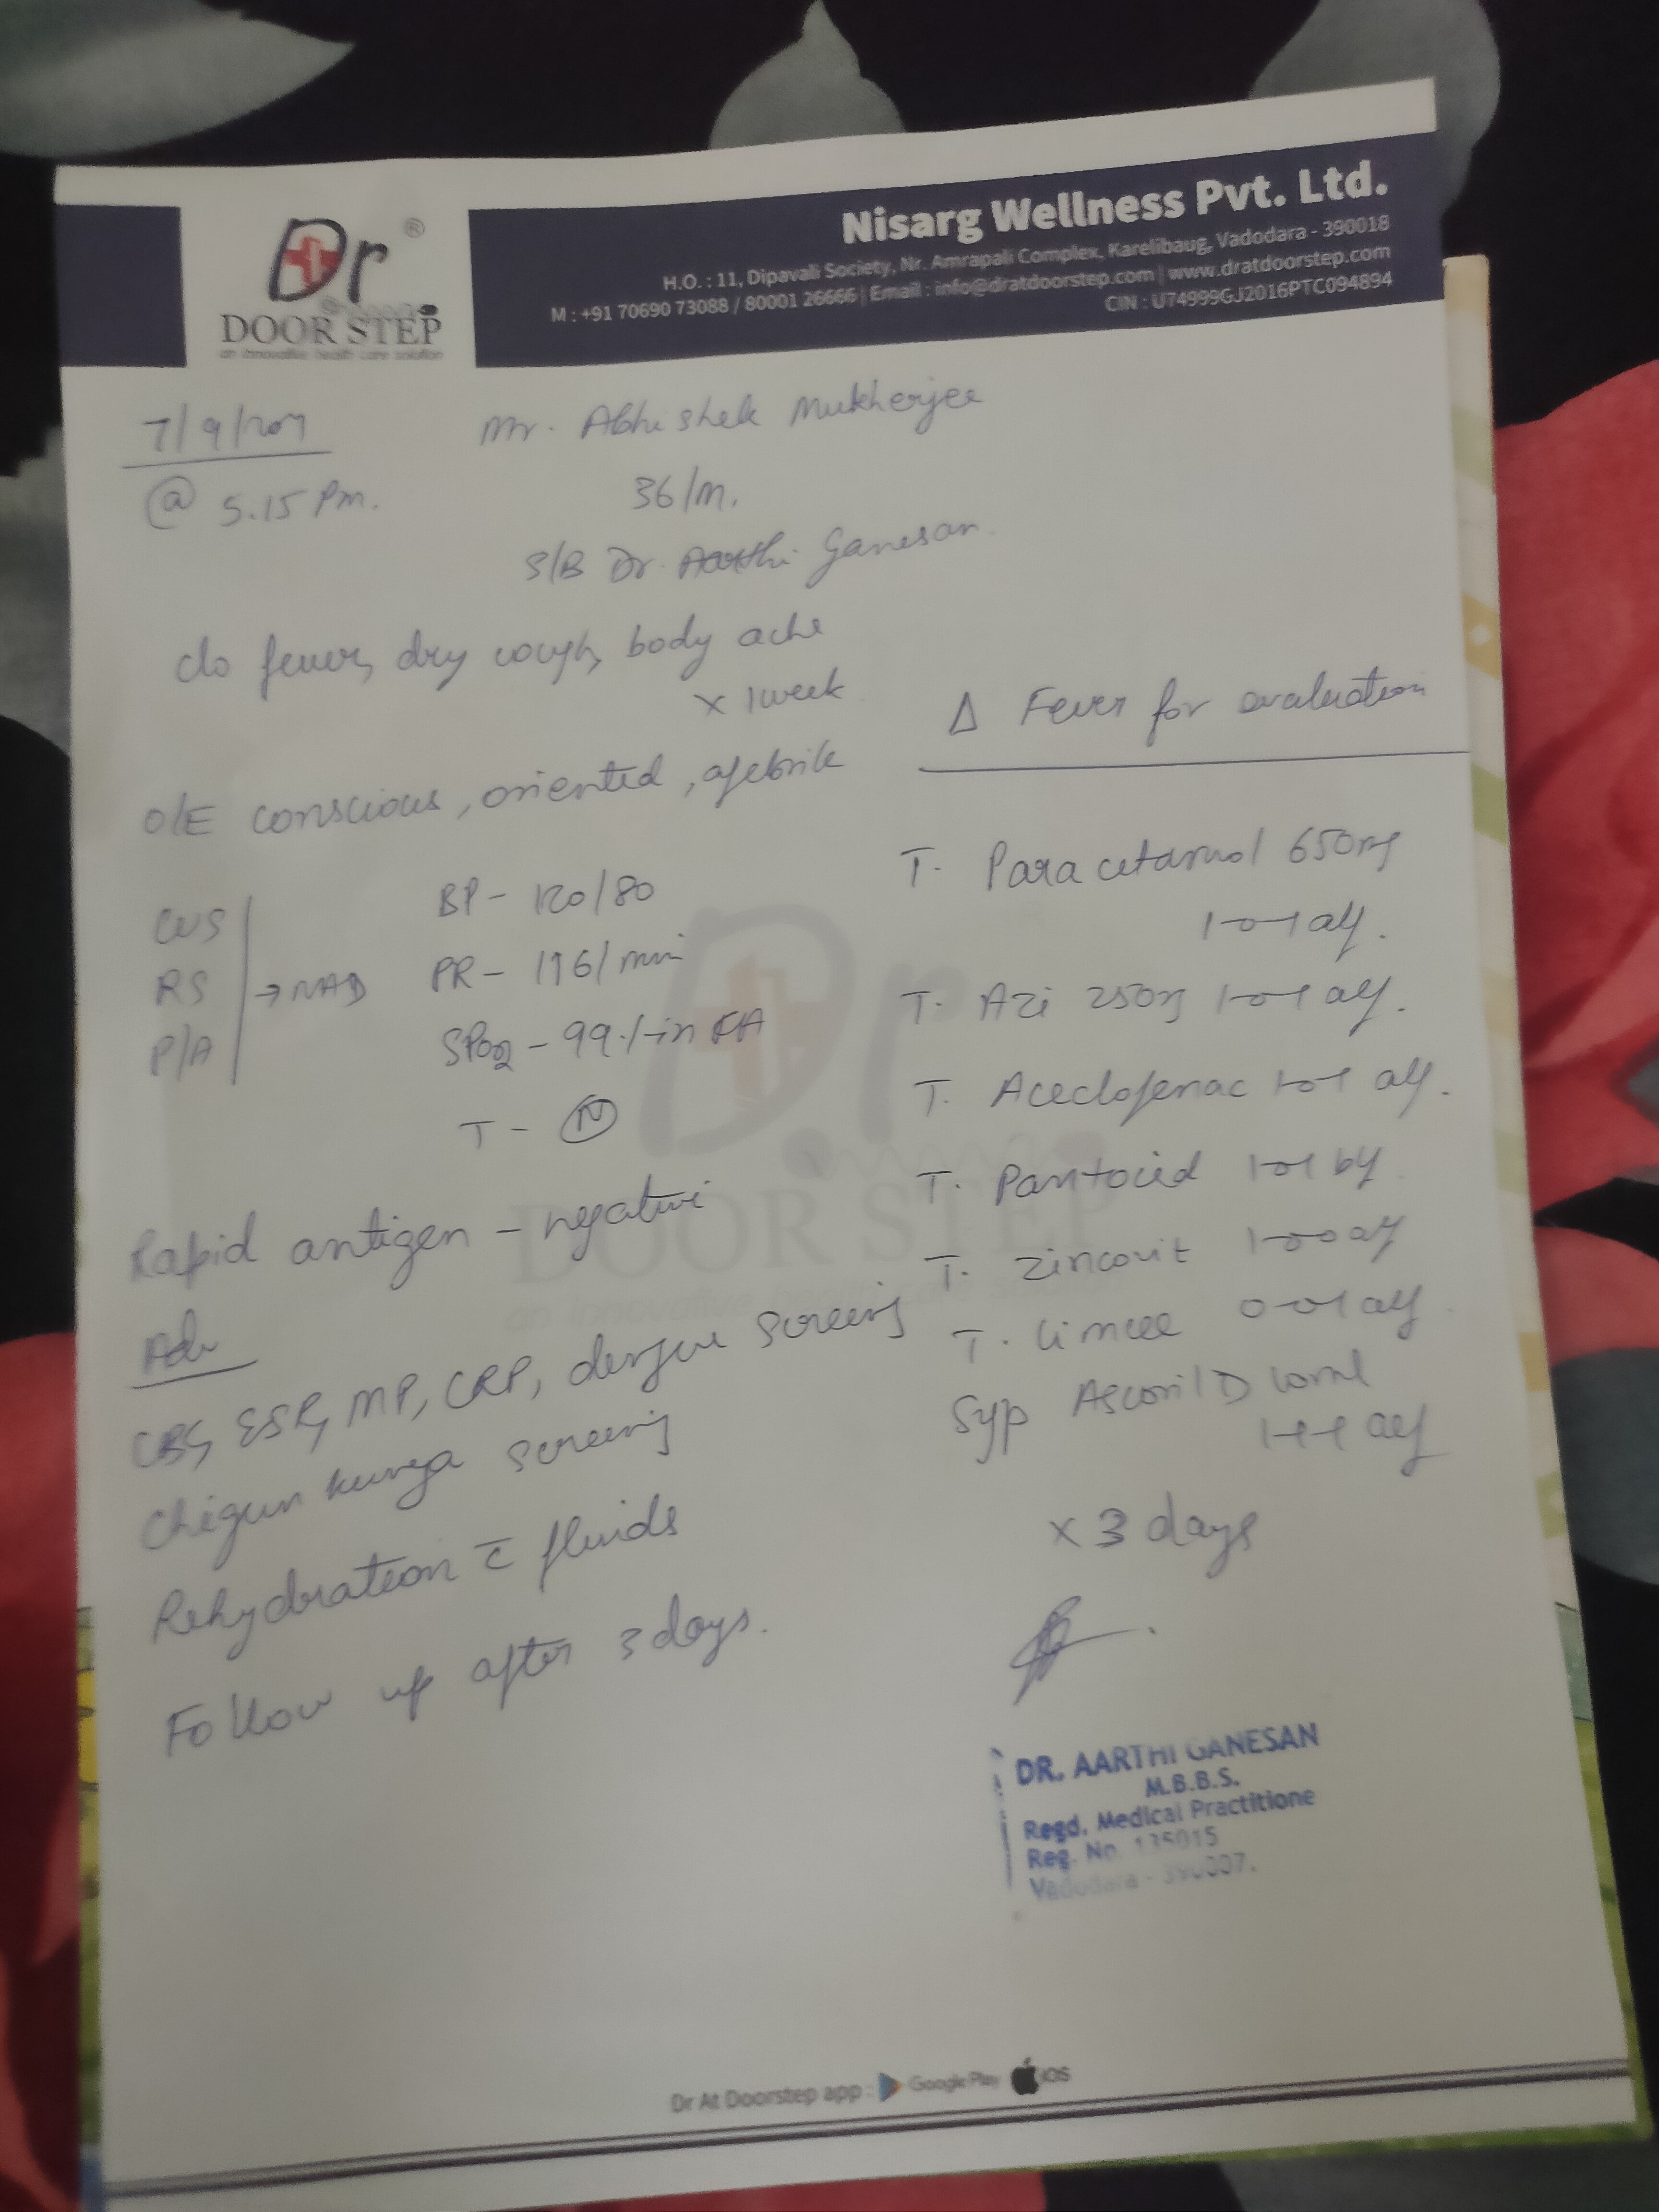 Dr ®
DOOR STEP
an innovative health care solution
Nisarg Wellness Pvt. Ltd.
H.O. : 11, Dipavali Society, Nr. Amrapali Complex, Karelibaug, Vadodara - 390018
M : +91 70690 73088 / 80001 26666 | Email : info@dratdoorstep.com | www.dratdoorstep.com
CIN : U74999GJ2016PTC094894
7/9/
@ 5.15 Pm.
Mr. Abhishek Mukherjee
36/M.
S/B Dr. Aarthi Ganesan.
c/o fever, dry cough, body ache
x 1 week
O/E conscious, oriented, afebrile
CVS
RS
P/A
→ NAD
BP - 120/80
PR - 116/min
SPO2 - 99% in RA
T - N
Rapid antigen - negative
Adv
CBC, ESR, MP, CRP, dengue screening
Chigun kunya screening
Rehydration c̄ fluids
Follow up after 3 days.
Δ Fever for evaluation
T. Paracetamol 650mg
1-0-1 af.
T. Azi 250mg 1-0-1 af.
T. Aceclofenac 1-0-1 af.
T. Pantocid 1-0-1 bf
T. Zincovit 1-0-0 af
T. Limcee 0-0-1 af
Syp Ascoril D 10ml
1-1-1 af
x 3 days
DR. AARTHI GANESAN
M.B.B.S.
Regd. Medical Practitione
Reg. No. 135015
Vadodara - 390007.
Dr At Doorstep app : Google Play iOS